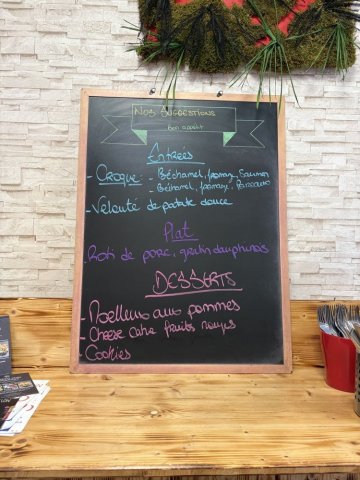 Nos SUGGESTIONS
Bon appétit
Entrées
- Croque: - Béchamel, fromage, Saumon
- Béchamel, fromage, Poireaux
- Velouté de patate douce
Plat
- Roti de porc, gratin dauphinois
DESSERTS
- Moelleux aux pommes
- Cheese cake fruits rouges
- Cookies